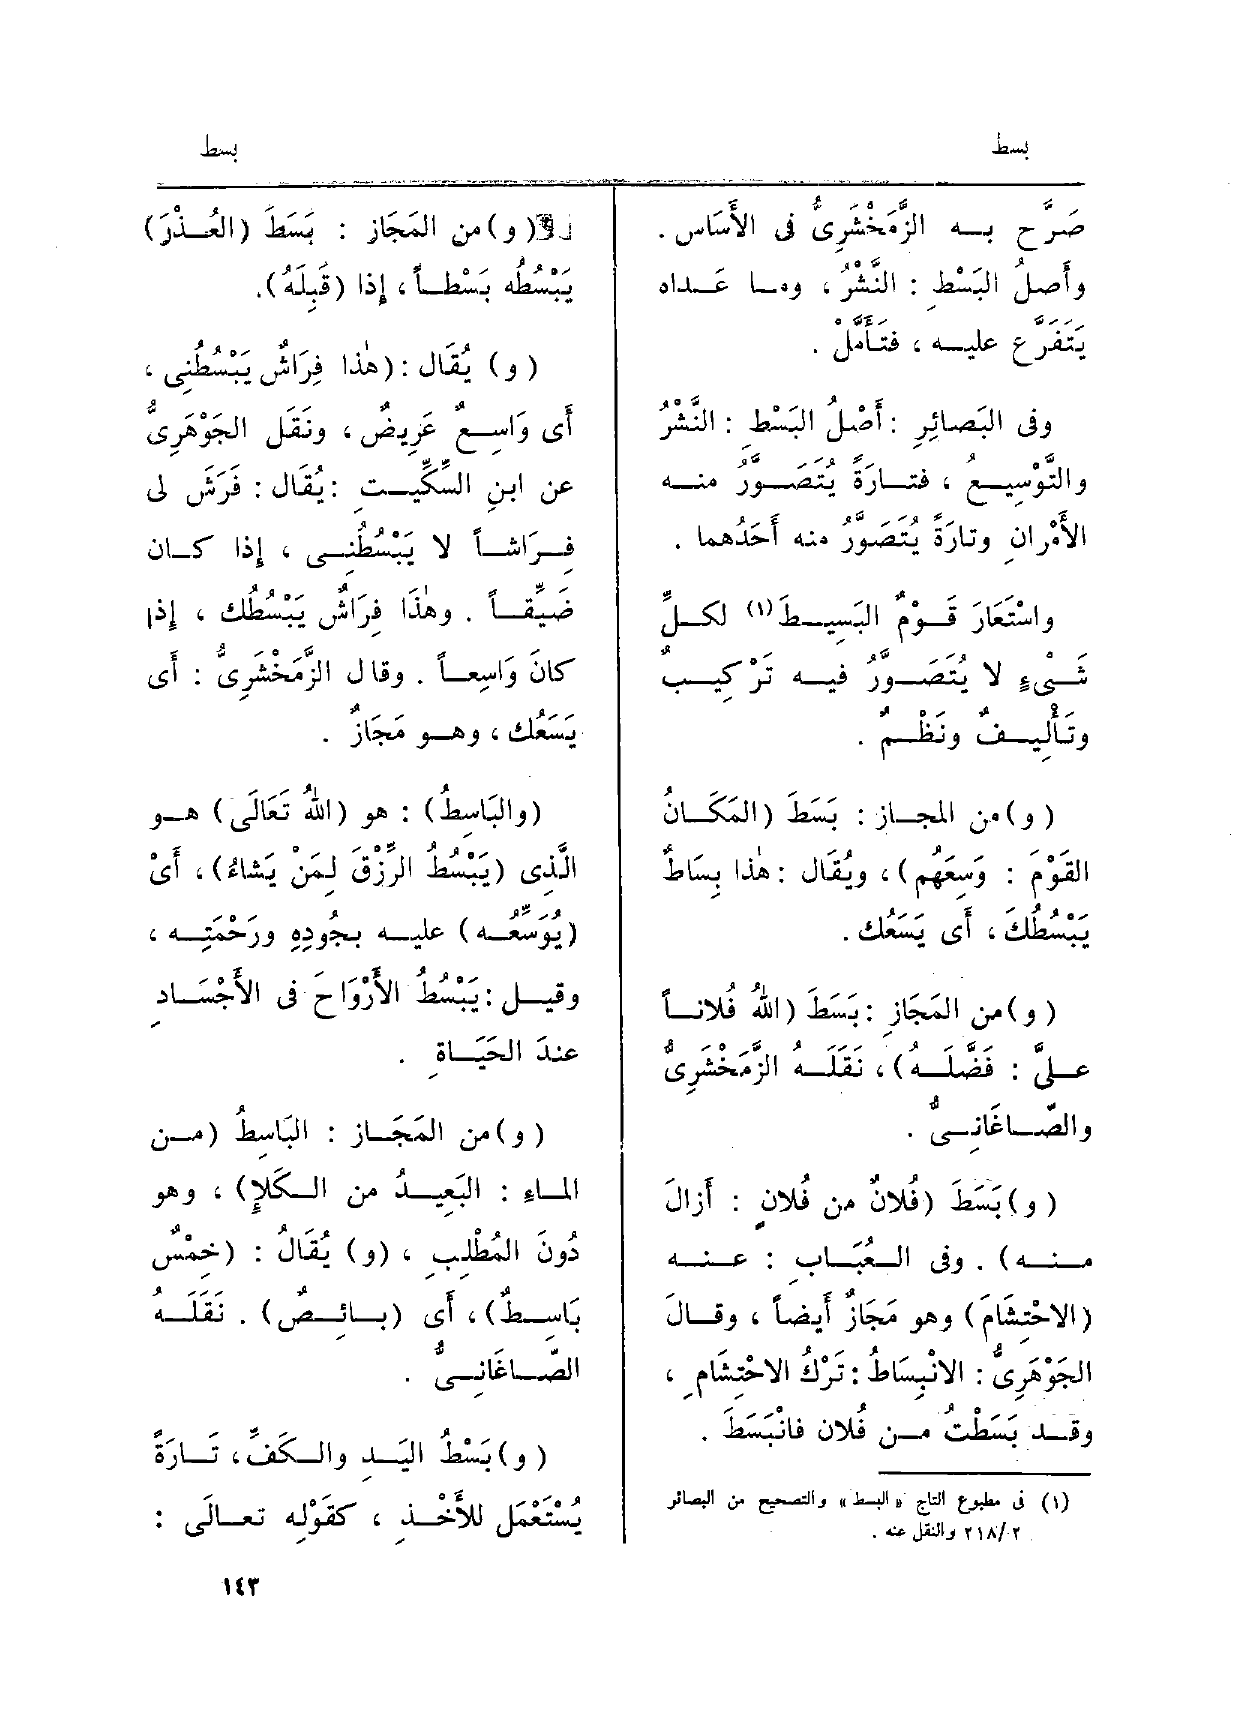 بسط
بسط
صَرَّح بــه الزَّمَخْشَرِىُّ فى الأَسَاس .
وأَصلُ البَسْطِ : النَّشْرُ ، وما عَــداه
يَتَفَرَّع عليــه ، فتَأَمَّلْ .
وفى البَصائِرِ : أَصْلُ البَسْط : النَّشْرُ
والتَّوْسِيــعُ ، فتــارَةً يُتَصَــوَّرُ منــه
الأَمْرانِ وتارَةً يُتَصَوَّرُ منه أَحَدُهما .
واسْتَعَارَ قَــوْمٌ البَسِيــطَ(١) لكــلِّ
شَــىْءٍ لا يُتَصَــوَّرُ فيــه تَرْكِيــبٌ
وتَأْلِيــفٌ ونَظْــمٌ .
( و)من المجــاز : بَسَطَ (المَكَــانُ
القَوْمَ : وَسِعَهُم) ، ويُقَال : هٰذا بِسَاطٌ
يَبْسُطُكَ ، أَى يَسَعُك .
( و)من المَجَازِ : بَسَطَ (اللهُ فُلاناً
عــلىَّ : فَضَّلَــهُ) ، نَقَلَــهُ الزَّمَخْشَرِىُّ
والصّــاغَانِــىُّ .
( و)بَسَطَ (فُلانٌ من فُلانٍ : أَزالَ
مــنــه) . وفى العُبَــابِ : عــنــه
(الاحْتِشَامَ) وهو مَجَازٌ أَيضاً ، وقــالَ
الجَوْهَرِىُّ : الانْبِسَاطُ : تَرْكُ الاحْتِشَامِ ،
وقــد بَسَطْتُ مــن فُلان فانْبَسَطَ .
(١) فى مطبوع التاج « البسط » والتصحيح من البصائر
٢/ ٢١٨ والنقل عنه .
( و)من المَجَاز : بَسَطَ (العُــذْرَ)
يَبْسُطُه بَسْطــاً ، إذا (قَبِلَهُ).
( و) يُقَال : (هٰذا فِرَاشٌ يَبْسُطُنِى ،
أَى وَاسِــعٌ عَرِيضٌ ، ونَقَل الجَوْهَرِىُّ
عن ابنِ السِّكِّيــتِ : يُقَال : فَرَشَ لى
فِــرَاشــاً لا يَبْسُطُنِــى ، إذا كــان
ضَيِّقــاً . وهٰذَا فِرَاشٌ يَبْسُطُك ، إذا
كانَ وَاسِعــاً . وقال الزَّمَخْشَرِىُّ : أَى
يَسَعُك ، وهــو مَجَازٌ .
(والبَاسِطُ) : هو (اللهُ تَعَالَى) هــو
الَّذِى (يَبْسُطُ الرِّزْقَ لِمَنْ يَشاءُ) ، أَىْ
(يُوَسِّعُــه) عليــه بجُودِهِ ورَحْمَتِــه ،
وقيــل : يَبْسُطُ الأَرْوَاحَ فى الأَجْسَــادِ
عندَ الحَيَــاةِ .
( و)من المَجَــاز : البَاسِطُ (مــن
المــاءِ : البَعِيــدُ من الــكَلإِ) ، وهو
دُونَ المُطْلِبِ ، (و) يُقَالُ : (خِمْسٌ
بَاسِــطٌ) ، أَى (بــائــصٌ) . نَقَلَــهُ
الصّــاغَانِــىُّ .
( و)بَسْطُ اليَــدِ والــكَفِّ ، تَــارَةً
يُسْتَعْمَل للأَخْــذِ ، كقَوْلِه تعــالَى :
١٤٣